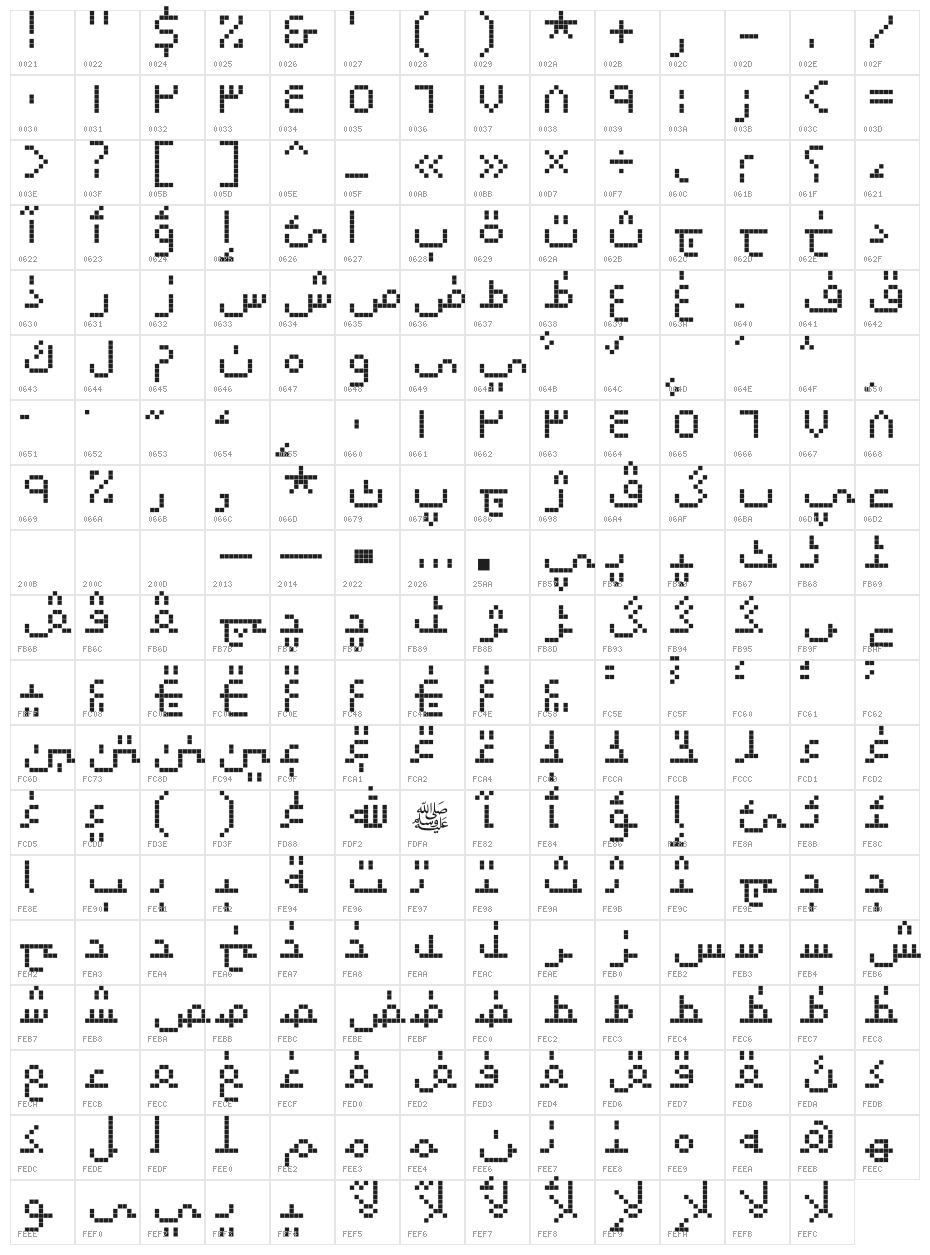 ! " $ % & ' ( ) * + , - . /
0021 0022 0024 0025 0026 0027 0028 0029 002A 002B 002C 002D 002E 002F
٠ ١ ٢ ٣ ٤ ٥ ٦ ٧ ٨ ٩ : ; < =
0030 0031 0032 0033 0034 0035 0036 0037 0038 0039 003A 003B 003C 003D
> ? [ ] ^ _ « » × ÷ ، ؛ ؟ ء
003E 003F 005B 005D 005E 005F 00AB 00BB 00D7 00F7 060C 061B 061F 0621
آ أ ؤ إ ئ ا ب ة ت ث ج ح خ د
0622 0623 0624 0625 0626 0627 0628 0629 062A 062B 062C 062D 062E 062F
ذ ر ز س ش ص ض ط ظ ع غ ـ ف ق
0630 0631 0632 0633 0634 0635 0636 0637 0638 0639 063A 0640 0641 0642
ك ل م ن ه و ى ي ً ٌ ٍ َ ُ ِ
0643 0644 0645 0646 0647 0648 0649 064A 064B 064C 064D 064E 064F 0650
ّ ْ ٓ ٔ ٕ ٠ ١ ٢ ٣ ٤ ٥ ٦ ٧ ٨
0651 0652 0653 0654 0655 0660 0661 0662 0663 0664 0665 0666 0667 0668
٩ ٪ ٫ ٬ ٭ ٹ پ چ ژ ڤ گ ں ې ے
0669 066A 066B 066C 066D 0679 067E 0686 0698 06A4 06AF 06BA 06D0 06D2
– — • … ▪ ﭗ ﭘ ﭙ ﭧ ﭨ ﭩ
200B 200C 200D 2013 2014 2022 2026 25AA FB57 FB58 FB59 FB67 FB68 FB69
ﭫ ﭬ ﭭ ﭻ ﭼ ﭽ ﮉ ﮋ ﮍ ﮓ ﮔ ﮕ ﮟ ﮯ
FB6B FB6C FB6D FB7B FB7C FB7D FB89 FB8B FB8D FB93 FB94 FB95 FB9F FBAF
FC08 FC0E FC48 FC4E FC58 FC5E FC5F FC60 FC61 FC62
FC6D FC73 FC8D FC94 FC9F FCA1 FCA2 FCA4 FCC9 FCCA FCCB FCCC FCD1 FCD2
( ) ﷲ ﷺ ﺂ ﺄ ﺆ ﺈ ﺊ ﺋ ﺌ
FCD5 FCDD FD3E FD3F FD88 FDF2 FDFA FE82 FE84 FE86 FE88 FE8A FE8B FE8C
ﺎ ﺐ ﺑ ﺒ ﺔ ﺖ ﺗ ﺘ ﺚ ﺛ ﺜ ﺞ ﺟ ﺠ
FE8E FE90 FE91 FE92 FE94 FE96 FE97 FE98 FE9A FE9B FE9C FE9E FE9F FEA0
ﺢ ﺣ ﺤ ﺦ ﺧ ﺨ ﺪ ﺬ ﺮ ﺰ ﺲ ﺳ ﺴ ﺶ
FEA2 FEA3 FEA4 FEA6 FEA7 FEA8 FEAA FEAC FEAE FEB0 FEB2 FEB3 FEB4 FEB6
ﺷ ﺸ ﺺ ﺻ ﺼ ﺾ ﺿ ﻀ ﻂ ﻃ ﻄ ﻆ ﻇ ﻈ
FEB7 FEB8 FEBA FEBB FEBC FEBE FEBF FEC0 FEC2 FEC3 FEC4 FEC6 FEC7 FEC8
ﻊ ﻋ ﻌ ﻎ ﻏ ﻐ ﻒ ﻓ ﻔ ﻖ ﻗ ﻘ ﻚ ﻛ
FECA FECB FECC FECE FECF FED0 FED2 FED3 FED4 FED6 FED7 FED8 FEDA FEDB
ﻜ ﻞ ﻟ ﻠ ﻢ ﻣ ﻤ ﻦ ﻧ ﻨ ﻩ ﻪ ﻫ ﻬ
FEDC FEDE FEDF FEE0 FEE2 FEE3 FEE4 FEE6 FEE7 FEE8 FEE9 FEEA FEEB FEEC
ﻮ ﻰ ﻲ ﻳ ﻴ ﻵ ﻶ ﻷ ﻸ ﻹ ﻺ ﻻ ﻼ
FEEE FEF0 FEF2 FEF3 FEF4 FEF5 FEF6 FEF7 FEF8 FEF9 FEFA FEFB FEFC